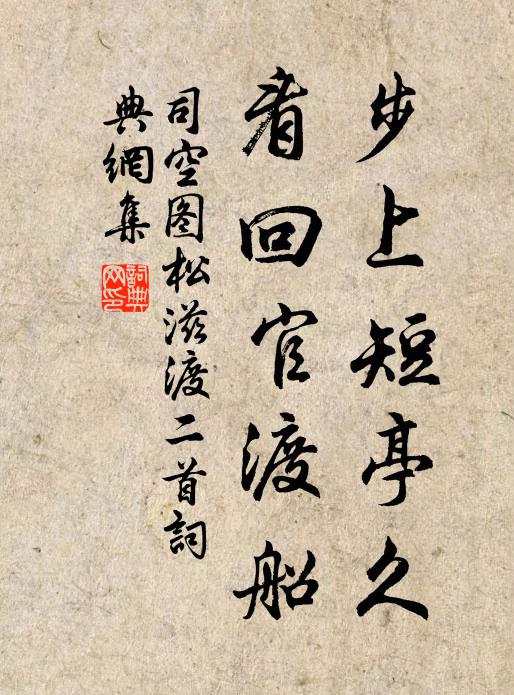 步上短亭久
看回官渡船
司空图松滋渡二首詞
典網集
詞典網印